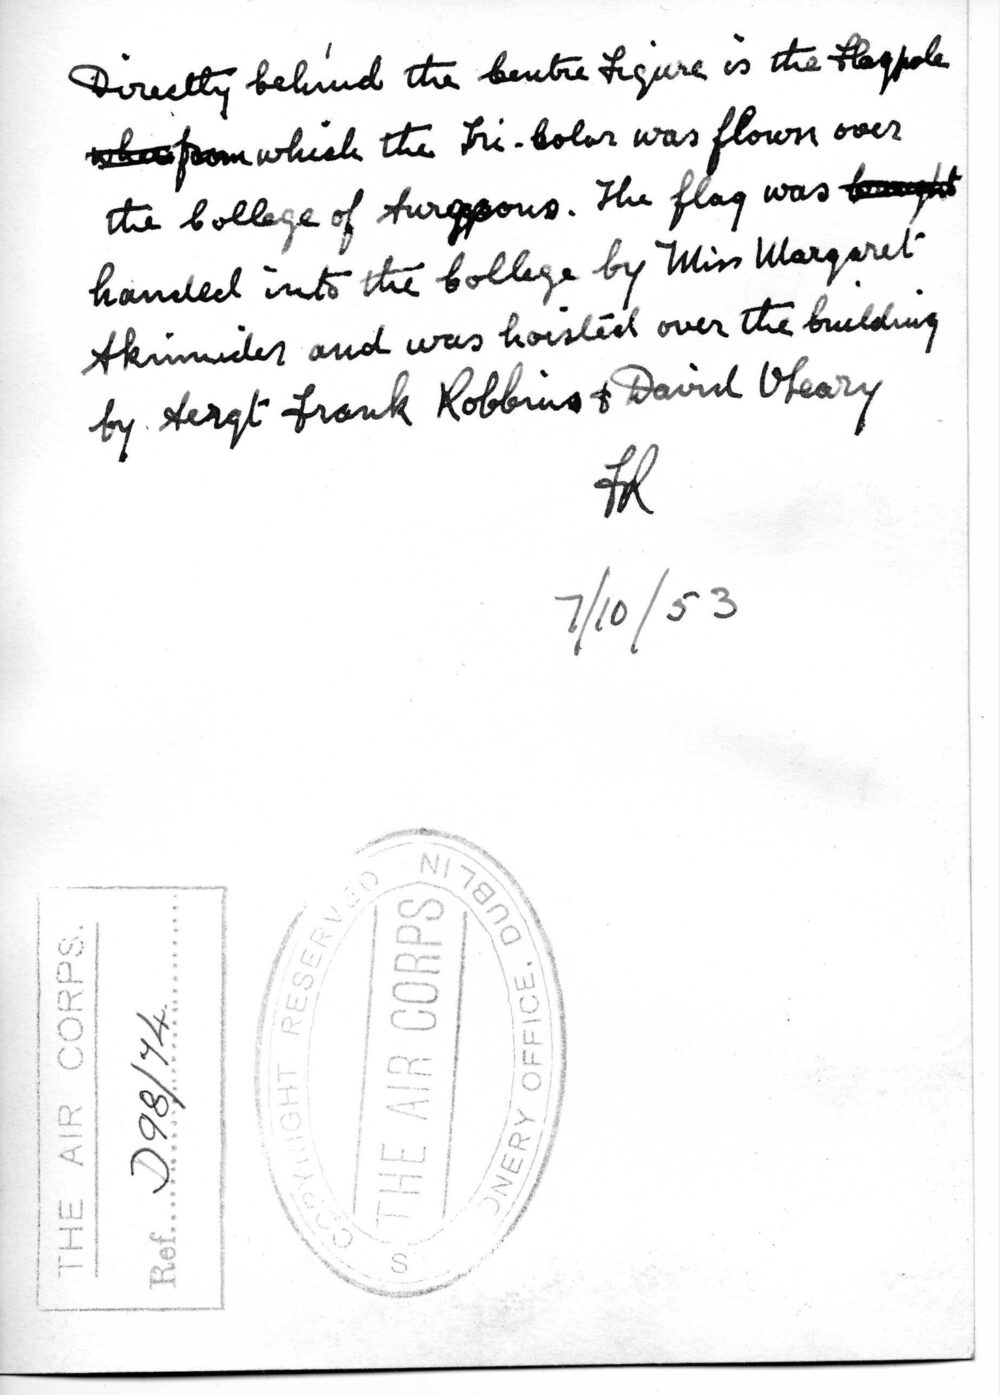 Directly behind the Centre Figure is the Flagpole
from which the Tri-Color was flown over
the College of Surgeons. The flag was brought
handed into the College by Miss Margaret
Skinnider and was hoisted over the building
by Sergt Frank Robbins & David OLeary
FR
7/10/53
THE AIR CORPS.
Ref. D98/74
COPYRIGHT RESERVED
THE AIR CORPS
S ONERY OFFICE, DUBLIN